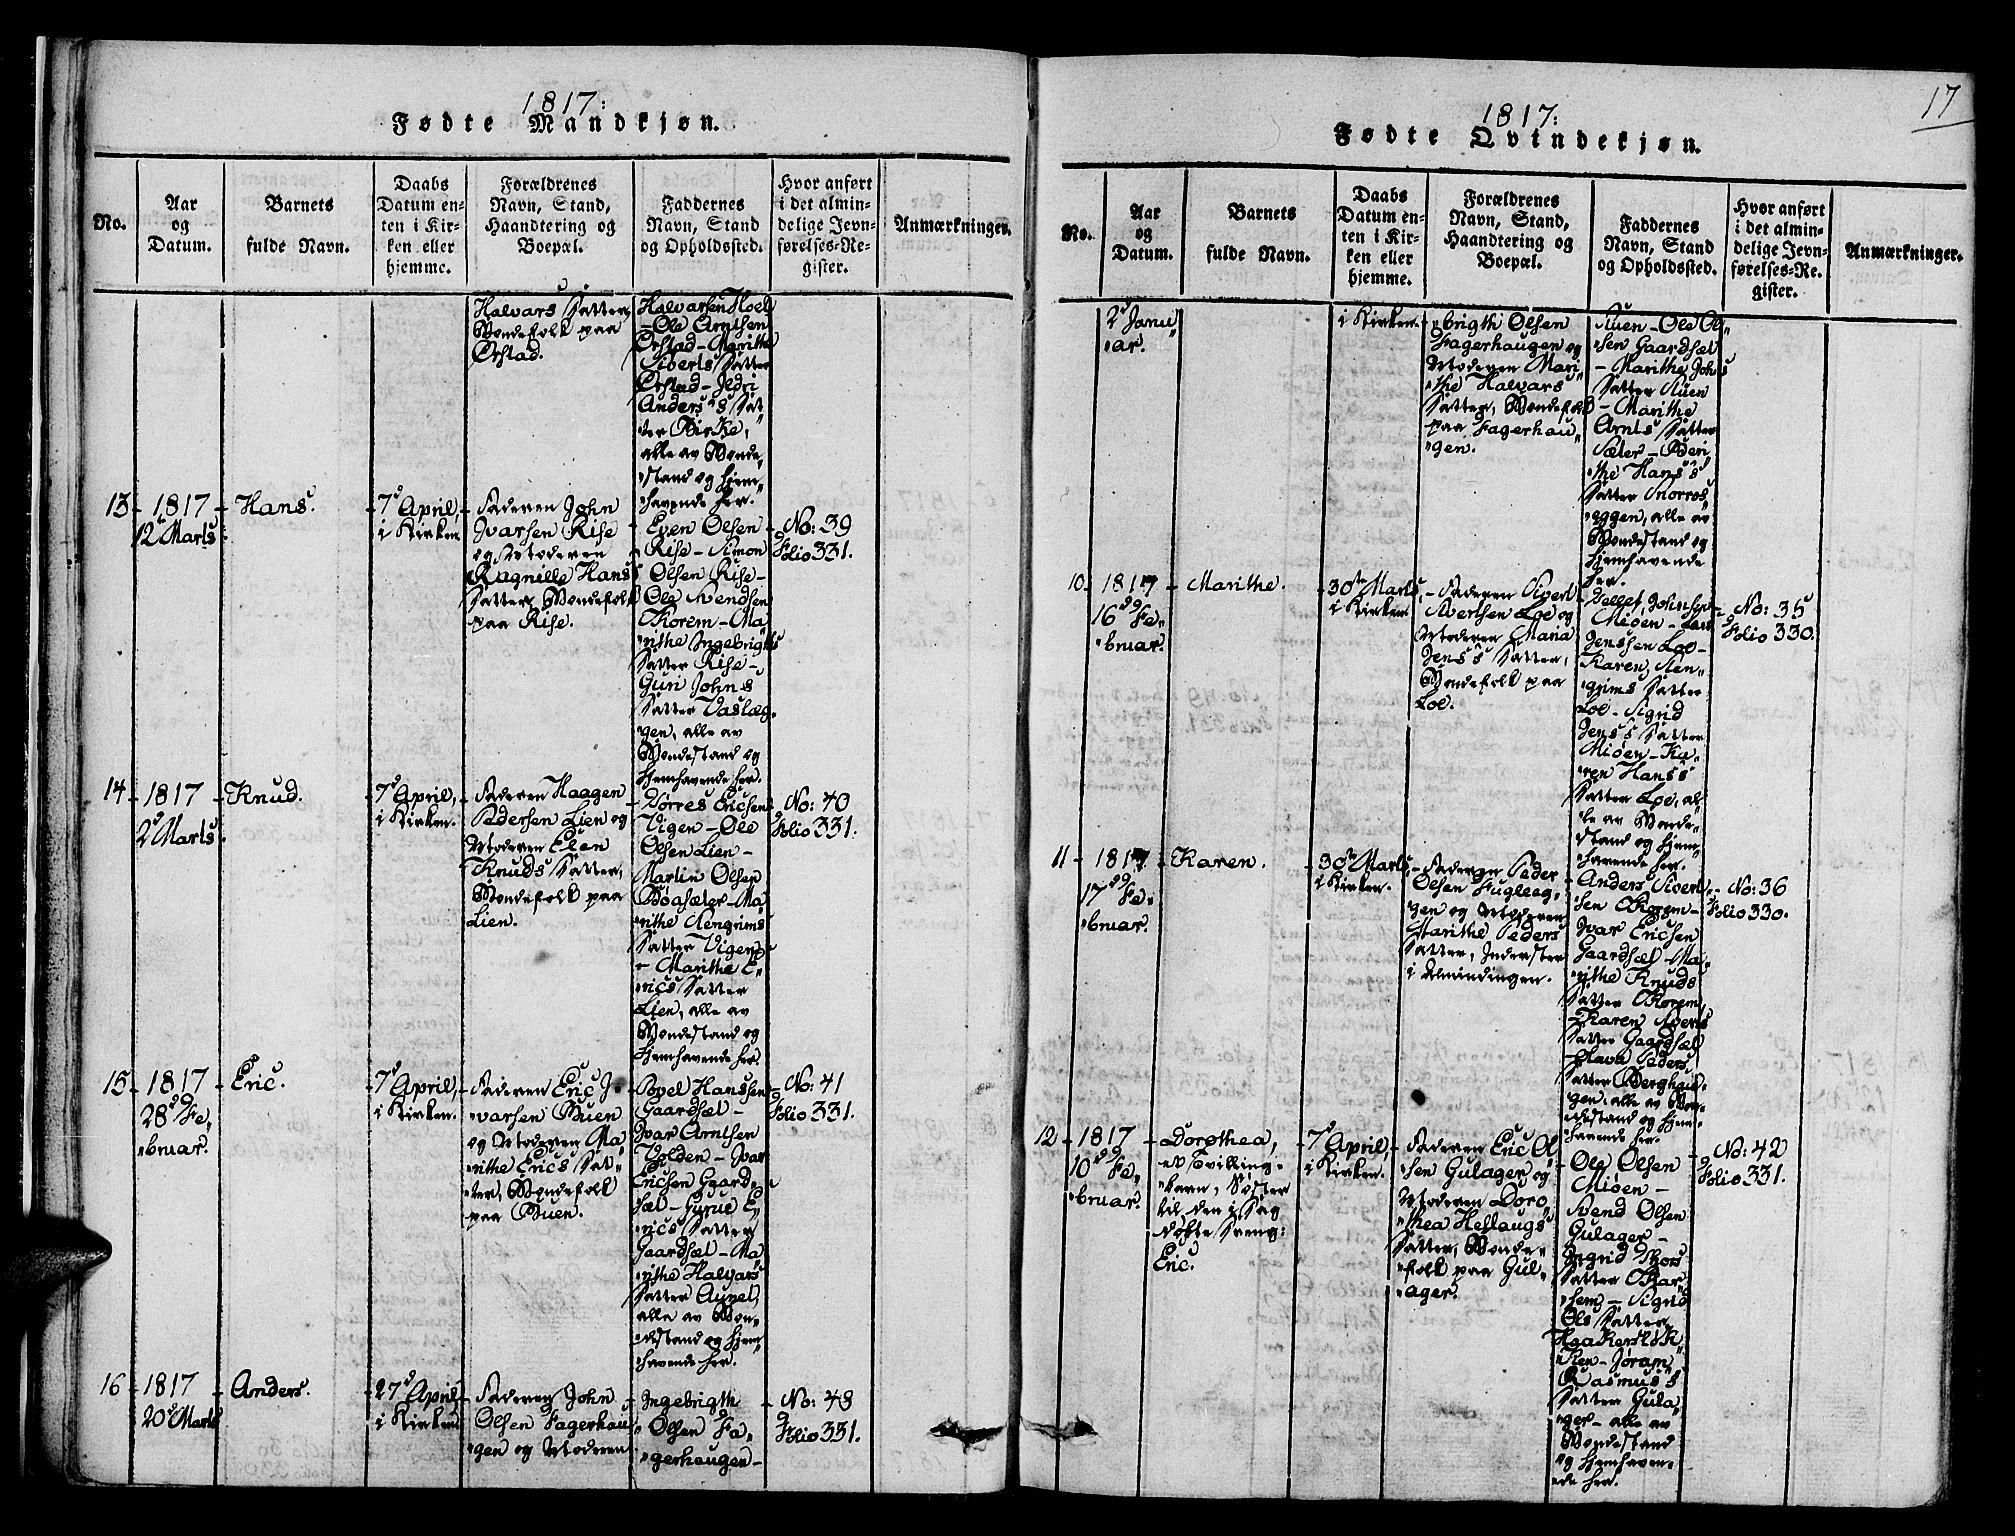 17
1817:
Fødte Mandkjøn.
No.
Aar
og
Datum.
Barnets
fulde Navn.
Daabs
Datum en-
ten i Kir-
ken eller
hjemme.
Forældrenes
Navn, Stand,
Haandtering og
Boepæl.
Faddernes
Navn, Stand
og Opholdssted.
Hvor anført
i det almin-
delige Jevn-
førelses-Re-
gister.
Anmærkninger.
Halvars Datter,
Bondefolk paa
Ørstad.
Halvarsen Hoel
- Ole Arntsen
Ørstad - Marithe
Siverts Datter
Ørstad - Jedri
Anders's Dat„
„ter Birke,
alle av Bonde„
„stand og hjem„
„havende her.
13 - 1817 - Hans.
12te Marts.
7d April,
i Kirken.
- Faderen John
Ivarsen Rise
og Moderen
Ragnille Hans's
Datter, Bondefolk
paa Rise.
- Even Olsen
Rise - Simon
Olsen Rise -
Ole Svendsen
Korem - Ma„
„rithe Ingebrigts
Datter Rise -
Guri Johns
Datter Vaslæg„
„gen, alle av
Bondestand og
hjemhavende her.
- No: 39
Folio 331.
14 - 1817 - Knud.
2d Marts.
- 7d April,
i Kirken.
- Faderen Haagen
Pedersen Lien og
Moderen Elen
Knuds Datter,
Bondefolk paa
Lien.
- Tørres Ericsen
Vigen - Ole
Olsen Lien -
Martin Olsen
Bøasæter - Ma„
„rithe Stengrims
Datter Vigen
- Marithe E„
„rics Datter
Lien, alle av
Bondestand og
hjemhavende her.
- No: 40
Folio 331.
15 - 1817 - Eric.
28de Fe„
„bruar.
- 7d April,
i Kirken.
- Faderen Eric I„
„varsen Buen
og Moderen Ma„
„rithe Erics Dat„
„ter, Bondefolk
paa Buen.
- Povel Hanssen
Gaardsæt -
Ivar Arntsen
Holden - Ivar
Ericsen Gaard„
„sæt - Gurue E„
„rics Datter
Gaardsæt - Ma„
„rithe Halvars
Datter Aunet,
alle av Bon„
„destand og hjem„
„havende her.
- No: 41
Folio 331.
16 - 1817 - Anders.
20d Marts
- 27d April,
i Kirken
- Faderen John
Olsen Fagerhau„
„gen og Moderen
- Ingebrigth
Olsen Fa„
„gerhaugen -
- No: 43
Folio 331.
1817:
Fødte Qvindekjøn.
No.
Aar
og
Datum.
Barnets
fulde Navn.
Daabs
Datum en-
ten i Kir-
ken eller
hjemme.
Forældrenes
Navn, Stand,
Haandtering og
Boepæl.
Faddernes
Navn, Stand
og Opholdssted.
Hvor anført
i det almin-
delige Jevn-
førelses-Re-
gister.
Anmærkninger.
2d Janu„
„ar.
i Kirken.
„brigth Olsen
Fagerhaugen og
Moderen Mari„
„the Halvars
Datter, Bondefolk
paa Fagerhau„
„gen.
Stuen - Ole Ol„
„sen Gaardsæt
- Marithe Johns
Datter Stuen
- Marithe
Arnts Datter
Sæter - Beri„
„the Hans's
Datter Snorros„
„eggen, alle av
Bondestand og
hjemhavende
her.
10 - 1817 - Marithe.
16de Fe„
„bruar.
- 30te Marts,
i Kirken.
- Faderen Sivert
Sivertsen Loe og
Moderen Maria
Jens's Datter,
Bondefolk paa
Loe.
- Dellef Johnsen
Mioen - Lars
Jenssen Loe -
Karen Sten„
„grims Datter
Loe - Sigrid
Jens's Datter
Mioen - Ka„
„ren Hans's
Datter Loe, al„
„le av Bonde„
„stand og hjem„
„havende her.
- No: 35
Folio 330.
11 - 1817 - Karen.
17de Fe„
„bruar.
- 30te Marts,
i Kirken.
- Faderen Peder
Olsen Fugleag„
„gen og Moderen
Marithe Peders
Datter, Inderster
i Almindingen.
- Anders Sivert„
„sen Korem -
Ivar Ericsen
Gaardsæt - Ma„
„rithe Knuds
Datter Korem,
- Karen Siverts
Datter Gaardsæt
- Peders
Datter Berghau„
„gen, alle av Bon„
„destand og hjem„
„havende her.
- No: 36
Folio 330.
12 - 1817 - Dorothea,
10de Fe„
„bruar.
et Tvilling„
„barn, Søster
til den i Dag
døbte Dreng:
Eric.
- 7d April,
i Kirken.
- Faderen Eric Ol„
„sen Gulager og
Moderen Doro„
„thea Heslaugs
Datter, Bonde„
„folk paa Gul„
„ager.
- Ole Olsen
Mioen -
Svend Olsen
Gulager -
Ingrid Thors
Datter
- Sigrid
Ols Datter
- Jøram
Rasmus's
Datter Gula„
„ger - alle av
Bondestand
og hjemhaven„
„de her.
- No: 42
Folio 331.